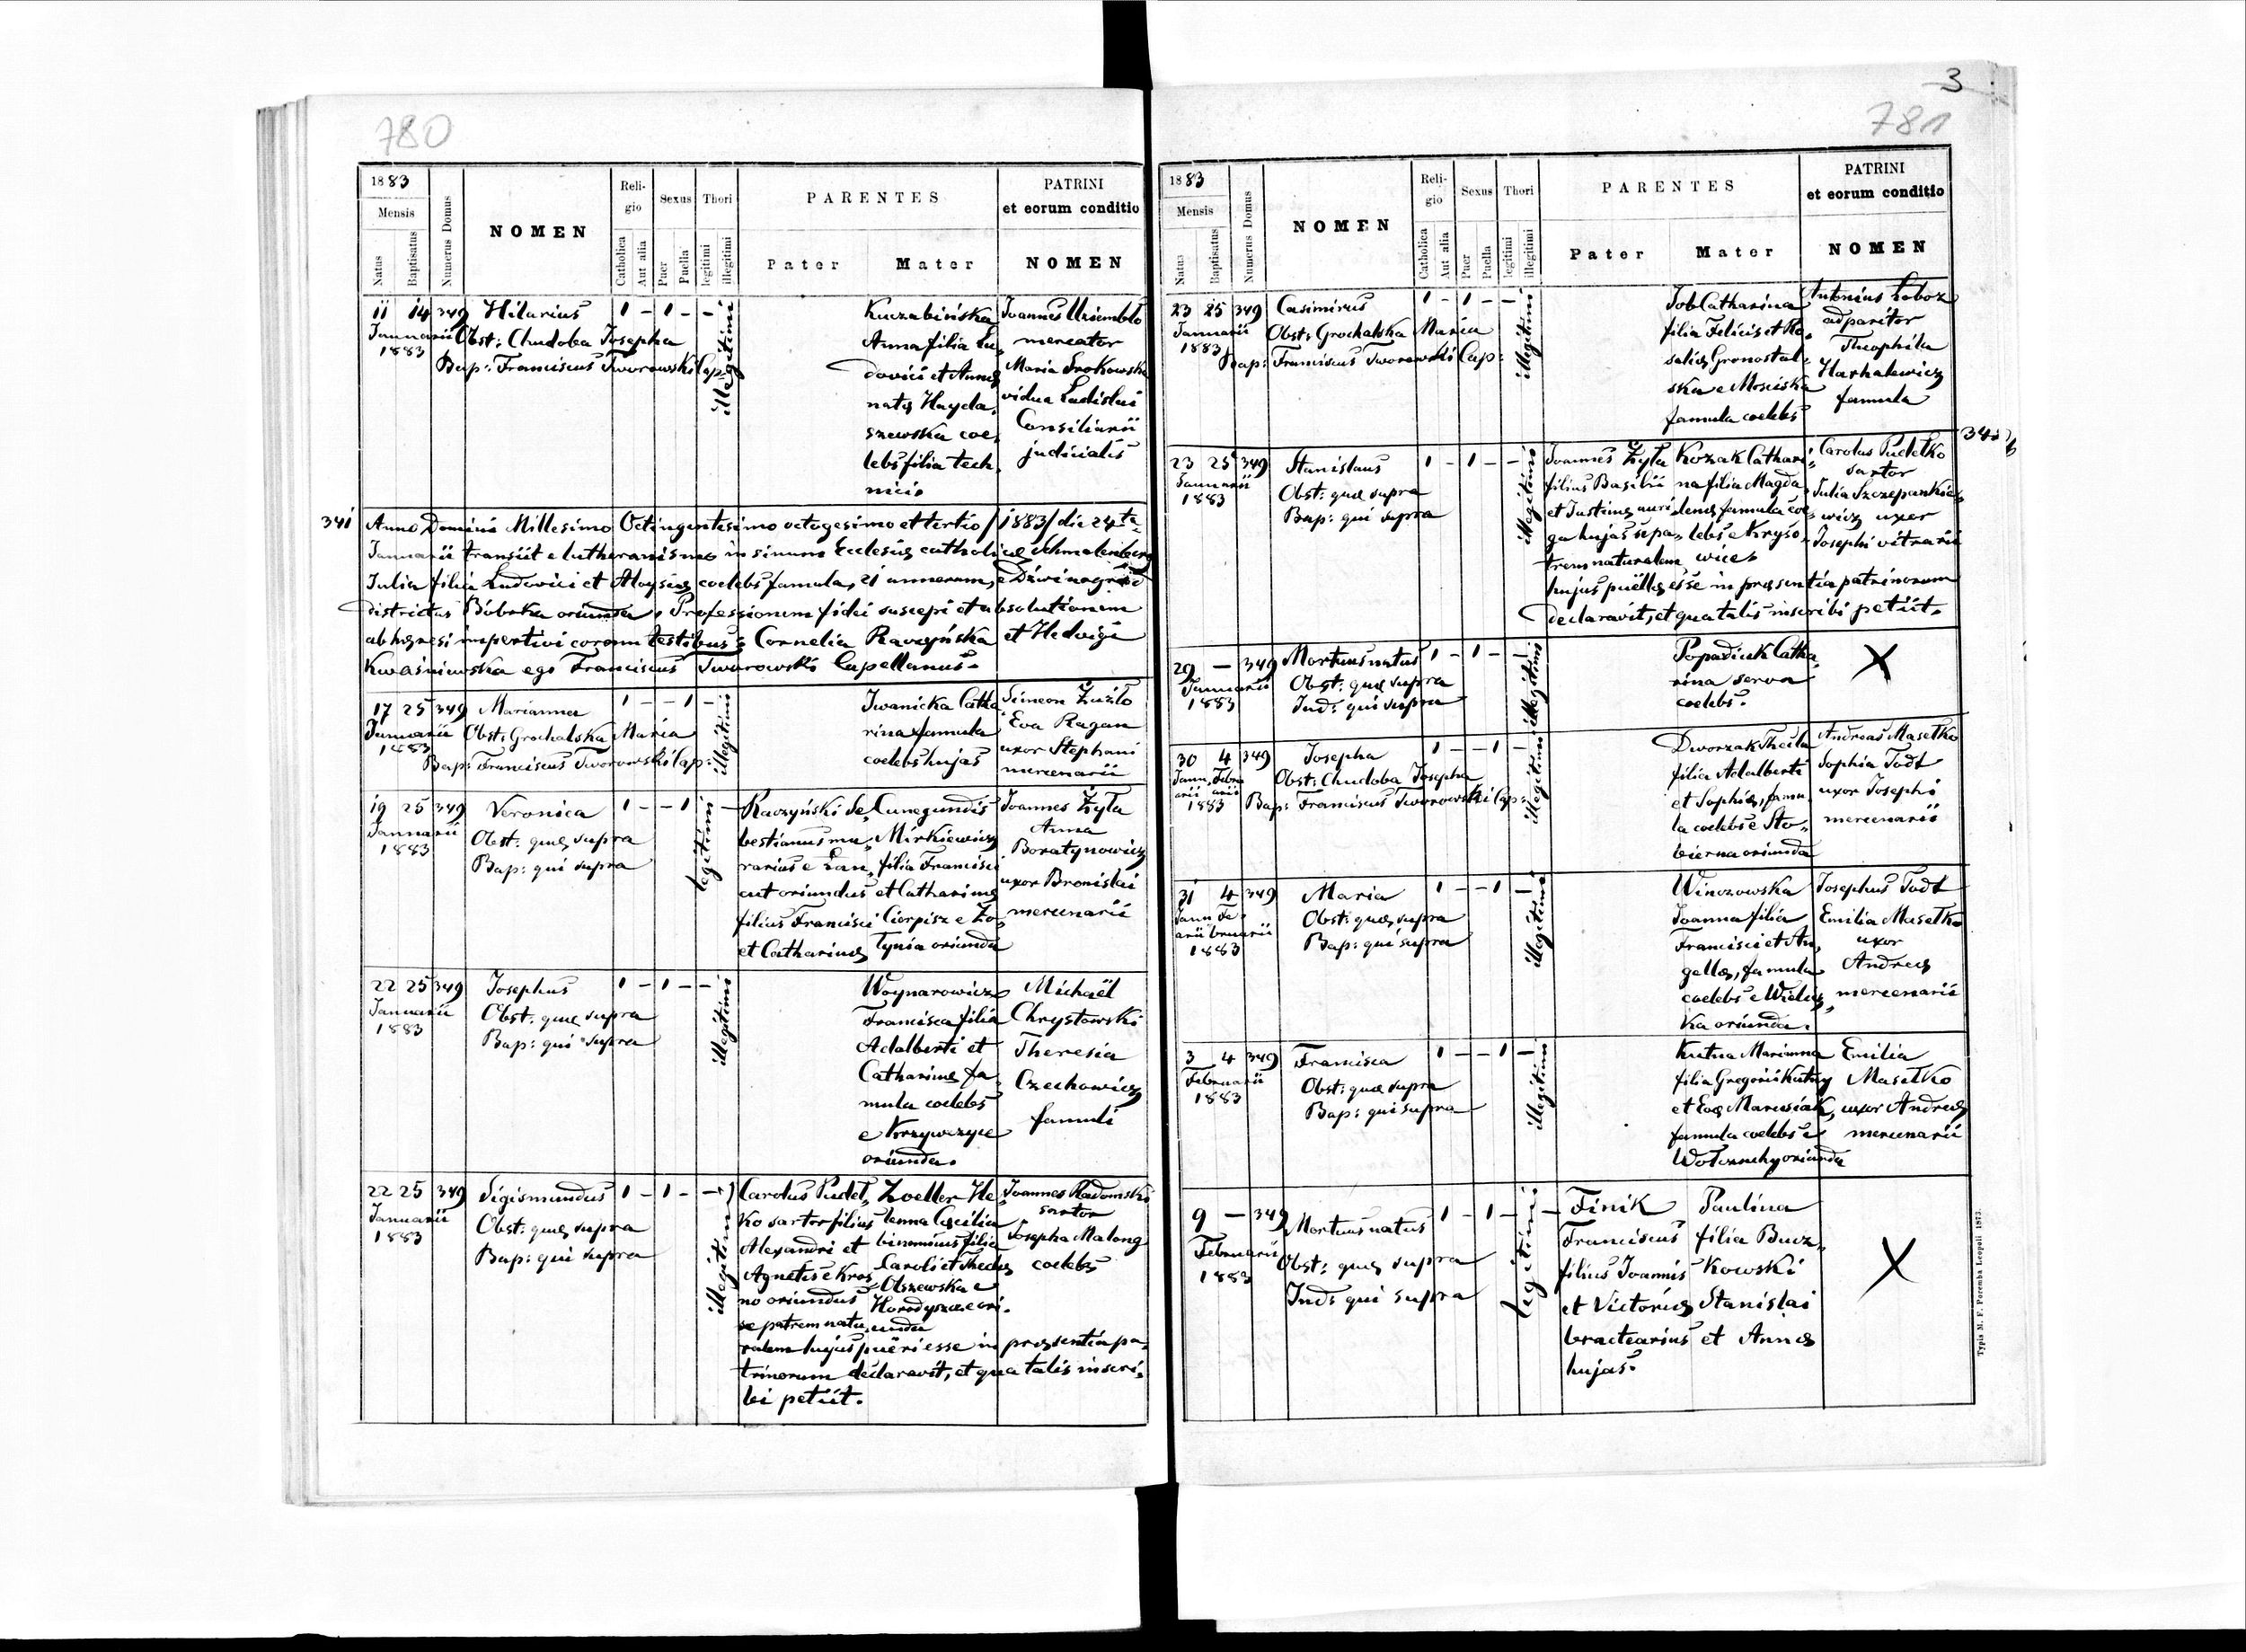 780
1883
Mensis
Natus
Baptisatus
Numerus Domus
NOMEN
Reli-
gio
Catholica
Aut alia
Sexus
Puer
Puella
Thori
legitimi
illegitimi
PARENTES
Pater
Mater
PATRINI
et eorum conditio
NOMEN
11 14 349 Hilarius 1 - 1 - -
Januarii Obst: Chudoba Josepha
1883
Bap: Franciscus Tworowski Cap:
illegitimi
Kuczabińska
Anna filia Lu-
dovici et Annæ
natæ Hayda-
szewska coe-
lebs filia tech-
nici
Joannes
mercator
Maria Srokowska
vidua Ladislai
Consiliarii
judicialis
341 Anno Domini Millesimo Octingentesimo octogesimo et tertio /1883/ die 24ta
Januarii transiit e lutheranismo in sinum Ecclesiæ catholicæ Schmalenberg
Julia filia Ludovici et Aloysiæ coelebs famula, 21 annorum, e Dźwinogród
districtus Bóbrka oriunda. Professionem fidei suscepi et absolutionem
ab hæresi impertivi coram testibus: Cornelia Raczyńska et Hedvigi
Kwaśniewska ego Franciscus Tworowski Capellanus.
17 25 349 Marianna 1 - - 1 -
Januarii Obst: Grochalska Maria
1883
Bap: Franciscus Tworowski Cap:
illegitimi
Iwanicka Catha
rina famula
coelebs hujas
Simeon Zuzlo
Eva Ragan
uxor Stephani
mercenarii
19 25 349 Veronica 1 - - 1 -
Januarii
1883
Obst: quæ supra
Bap: qui supra
legitimi
Raczyński Se-
bestianus mu-
rarius e Łan
cut oriundus
filius Francisci
et Catharinæ
Cunegundis
Mirkiewicz
filia Francisci
et Catharinæ
Cierpisz e Zo-
łynia oriunda
Joannes Zyła
Anna
Boratynowicz
uxor Bronislai
mercenarii
22 25 349 Josephus 1 - 1 - -
Januarii
1883
Obst: quæ supra
Bap: qui supra
illegitimi
Woynarowicz
Francisca filia
Adalberti et
Catharinæ fa
mula coelebs
e Krzywczyce
oriunda.
Michaël
Chrystowski
Theresia
Czechowicz
famuli
22 25 349 Sigismundus 1 - 1 - -
Januarii
1883
Obst: quæ supra
Bap: qui supra
illegitimi
Carolus Pudeł-
ko sartor filius
Alexandri et
Agnetis e Kros-
no oriundus
se patrem natu-
ralem hujus puëri esse in præsentia pa-
trinorum declaravit, et qua talis inscri-
bi petiit.
Zoeller He-
lenna Cæcilia
binominis filia
Caroli et Theclæ
Olszewska e
Horodyszcze ori-
unda
Joannes Radomski
sartor
Josepha Malong
coelebs
3
781
1883
Mensis
Natus
Baptisatus
Numerus Domus
NOMEN
Reli-
gio
Catholica
Aut alia
Sexus
Puer
Puella
Thori
legitimi
illegitimi
PARENTES
Pater
Mater
PATRINI
et eorum conditio
NOMEN
23 25 349 Casimirus 1 - 1 - -
Januarii Obst: Grochalska Maria
1883
Bap: Franciscus Tworowski Cap:
illegitimi
Job Catharina
filia Felicis et Ro-
saliæ Gronostal-
ska e Mosciska
famula coelebs
Antonius Łoboz
adparitor
Theophila
Harhalewicz
famula
23 25 349 Stanislaus 1 - 1 - -
Januarii
1883
Obst: quæ supra
Bap: qui supra
illegitimi
Joannes Zyła
filius Basilii
et Justinæ auri
ga hujas se pa-
trem naturalem
hujus puëllæ esse in præsentia patrinorum
declaravit, et qua talis inscribi petiit.
Kozak Cathari-
na filia Magda-
lenæ famula coe-
lebs e Kryso-
wice
Carolus Pudełko
sartor
Julia Szczepankie-
wicz uxor
Josephi vitrarii
29 - 349 Mortuus natus 1 - 1 - -
Januarii
1883
Obst: quæ supra
Ind: qui supra
illegitimi
Popadiuk Catha
rina serva
coelebs.
X
30 4 349 Josepha 1 - - 1 -
Janu Febru
arii arii
1883
Obst: Chudoba Josepha
Bap: Franciscus Tworowski Cap:
illegitimi
Dworzak Thecla
filia Adalberti
et Sophiæ, famu-
la coelebs e Sto-
bierna oriunda
Andreas Masełko
Sophia Todt
uxor Josephi
mercenarii
31 4 349 Maria 1 - - 1 -
Janu Fe-
arii bruarii
1883
Obst: quæ supra
Bap: qui supra
illegitimi
Winczowska
Joanna filia
Francisci et An-
gellæ, famula
coelebs e Wielicz-
ka oriunda.
Josephus Todt
Emilia Masełko
uxor
Andreæ
mercenarii
3 4 349 Francisca 1 - - 1 -
Februarii
1883
Obst: quæ supra
Bap: qui supra
illegitimi
Kutna Marianna
filia Gregorii Kutny
et Evæ Marusiak,
famula coelebs e
Wołoszczhy oriunda
Emilia
Masełko
uxor Andreæ
mercenarii
9 - 349 Mortuus natus 1 - 1 - -
Februarii
1883
Obst: quæ supra
Ind: qui supra
legitimi
Finik
Franciscus
filius Joannis
et Victoriæ
bractearius
hujas.
Paulina
filia Bucz-
kowski
Stanislai
et Annæ
X
Typis M. F. Poremba Leopoli 1873.